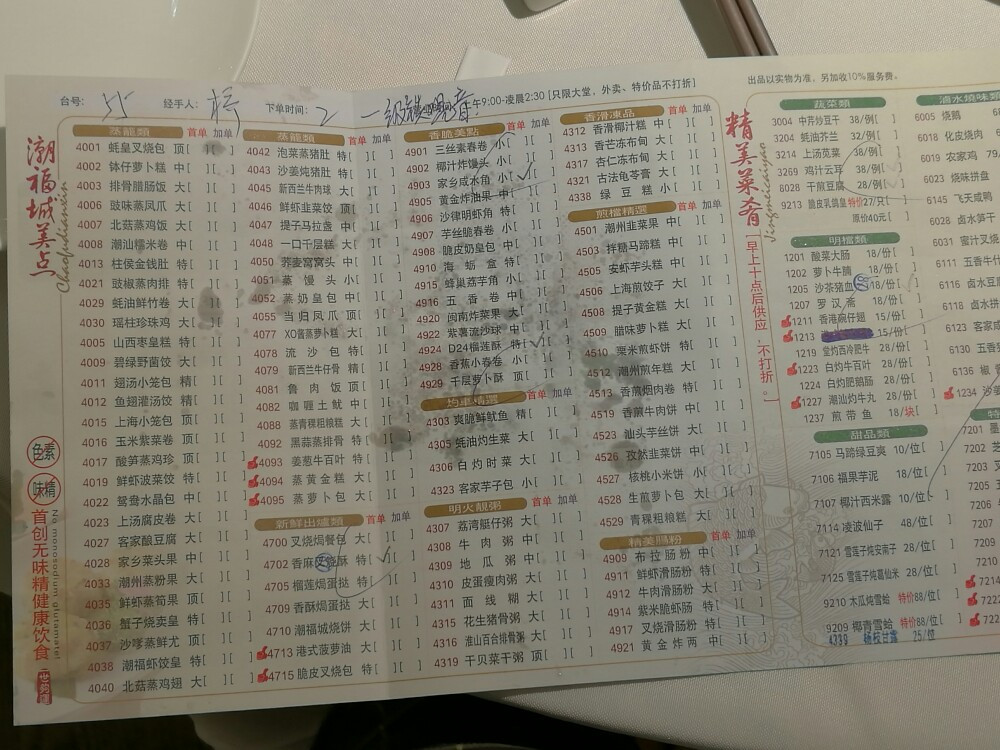 出品以实物为准，另加收10%服务费。
台号: 55 经手人: 下单时间: 2 一级 午9:00-凌晨2:30 [只限大堂，外卖、特价品不打折]
潮福城美点
Chaofudianxin
色素
味精
首创无味精健康饮食
No monosodium glutamate
蒸龍類 首单 加单
4001 蚝皇叉烧包 顶[ ][ ]
4002 钵仔萝卜糕 中[ ][ ]
4003 排骨腊肠饭 大[ ][ ]
4006 豉味蒸凤爪 大[ ][ ]
4007 北菇蒸鸡饭 大[ ][ ]
4008 潮汕糯米卷 中[ ][ ]
4013 柱侯金钱肚 特[ ][ ]
4021 豉椒蒸肉排 特[ ][ ]
4029 蚝油鲜竹卷 大[ ][ ]
4030 瑶柱珍珠鸡 大[ ][ ]
4005 山西枣皇糕 特[ ][ ]
4009 碧绿野菌饺 大[ ][ ]
4011 翅汤小笼包 精[ ][ ]
4012 鱼翅灌汤饺 精[ ][ ]
4015 上海小笼包 顶[ ][ ]
4016 玉米紫菜卷 顶[ ][ ]
4017 酸笋蒸鸡珍 顶[ ][ ]
4019 鲜虾菠菜饺 特[ ][ ]
4022 鸳鸯水晶包 中[ ][ ]
4023 上汤腐皮卷 大[ ][ ]
4027 客家酿豆腐 大[ ][ ]
4028 家乡菜头果 中[ ][ ]
4033 潮州蒸粉果 大[ ][ ]
4035 鲜虾蒸筍果 顶[ ][ ]
4036 蟹子烧卖皇 特[ ][ ]
4037 沙嗲蒸鲜尤 顶[ ][ ]
4038 潮福虾饺皇 特[ ][ ]
4040 北菇蒸鸡翅 大[ ][ ]
蒸龍類 首单 加单
4042 泡菜蒸猪肚 特[ ][ ]
4043 沙姜炖猪肚 特[ ][ ]
4045 新西兰牛仔球 大[ ][ ]
4046 鲜虾韭菜饺 顶[ ][ ]
4047 提子马拉盏 中[ ][ ]
4048 一口千层糕 大[ ][ ]
4050 荞麦窝窝头 中[ ][ ]
4051 蒸馒头 小[ ][ ]
4052 蒸奶皇包 中[ ][ ]
4055 当归凤爪 顶[ ][ ]
4077 XO酱蒸萝卜糕 大[ ][ ]
4078 流沙包 特[ ][ ]
4079 新西兰牛仔骨 精[ ][ ]
4081 鲁肉饭 顶[ ][ ]
4082 咖喱土鱿 中[ ][ ]
4088 蒸青稞粗粮糕 大[ ][ ]
4092 黑蒜蒸排骨 特[ ][ ]
4093 姜葱牛百叶 特[ ][ ]
4094 蒸黄金糕 大[ ][ ]
4095 蒸萝卜包 大[ ][ ]
新鮮出爐類 首单 加单
4700 叉烧焗餐包 大[ ][ ]
4702 香麻叉烧酥 特[✓][ ]
4705 榴莲焗蛋挞 特[ ][ ]
4709 香酥焗蛋挞 大[ ][ ]
4710 潮福城烧饼 大[ ][ ]
4713 港式菠萝油 大[ ][ ]
4715 脆皮叉烧包 特[ ][ ]
香脆美點 首单 加单
4901 三丝素春卷 小[ ][ ]
4902 椰汁炸馒头 小[ ][ ]
4903 家乡咸水角 小[✓][ ]
4905 黄金炸油果 中[ ][ ]
4906 沙律明虾角 特[ ][ ]
4907 芋丝脆春卷 小[ ][ ]
4908 脆皮奶皇包 中[ ][ ]
4910 海蛎盒 特[ ][ ]
4915 蜂巢荔芋角 小[ ][ ]
4916 五香卷 中[ ][ ]
4920 闽南炸菜果 大[ ][ ]
4922 紫薯流沙球 中[ ][ ]
4924 D24榴莲酥 特[✓][ ]
4928 香蕉小春卷 小[ ][ ]
4929 千层萝卜酥 顶[ ][ ]
均單精選 首单 加单
4303 爽脆鲜鱿鱼 精[ ][ ]
4305 蚝油灼生菜 大[ ][ ]
4306 白灼时菜 大[ ][ ]
4323 客家芋子包 小[ ][ ]
明火靓粥 首单 加单
4307 荔湾艇仔粥 大[ ][ ]
4308 牛肉粥 中[ ][ ]
4309 地瓜粥 中[ ][ ]
4310 皮蛋瘦肉粥 大[ ][ ]
4311 面线糊 大[ ][ ]
4315 花生猪骨粥 大[ ][ ]
4316 淮山百合排骨粥 大[ ][ ]
4319 干贝菜干粥 顶[ ][ ]
香滑凍品 首单 加单
4312 香滑椰汁糕 中[ ][ ]
4313 香芒冻布甸 大[ ][ ]
4317 杏仁冻布甸 大[ ][ ]
4321 古法龟苓膏 大[ ][ ]
4338 绿豆糕 小[ ][ ]
煎檔精選 首单 加单
4501 潮州韭菜果 中[ ][ ]
4503 拌糖马蹄糕 中[ ][ ]
4505 安虾芋头糕 中[ ][ ]
4506 上海煎饺子 大[ ][ ]
4508 提子黄金糕 大[ ][ ]
4509 腊味萝卜糕 大[ ][ ]
4510 粟米煎虾饼 特[ ][ ]
4512 潮州煎年糕 大[ ][ ]
4513 香煎烟肉卷 特[ ][ ]
4519 香煎牛肉饼 中[ ][ ]
4523 汕头芋丝饼 大[ ][ ]
4526 孜然韭菜饼 中[ ][ ]
4527 核桃小米饼 小[ ][ ]
4528 生煎萝卜包 大[ ][ ]
4529 青稞粗粮糕 大[ ][ ]
精美腸粉 首单 加单
4909 布拉肠粉 中[ ][ ]
4911 鲜虾滑肠粉 特[ ][ ]
4912 牛肉滑肠粉 大[ ][ ]
4914 紫米脆虾肠 特[ ][ ]
4917 叉烧滑肠粉 特[ ][ ]
4921 黄金炸两 中[ ][ ]
精美菜肴
Jingmeicaiyao
[早上十点后供应，不打折。]
蔬菜類
3004 中芹炒豆干 38/例[ ]
3204 蚝油芥兰 32/例[ ]
3214 上汤苋菜 38/例[ ]
3269 鸡汁云耳 38/例[ ]
8028 干煎豆腐 28/例[ ]
9213 脆皮乳鸽皇 特价27/只[ ]
原价40元[ ]
明檔類
1201 酸菜大肠 18/份[ ]
1202 萝卜牛腩 18/份[ ]
1205 沙茶猪血 18/份[ ]
1207 罗汉斋 18/份[ ]
1211 香港碗仔翅 15/份[ ]
1213 15/份[ ]
1219 堂灼西冷肥牛 28/份[ ]
1223 白灼牛百叶 28/份[ ]
1224 白灼肥鹅肠 28/份[ ]
1227 潮汕灼牛丸 28/份[ ]
1237 煎带鱼 18/块[ ]
甜品類
7105 马蹄绿豆爽 10/位[ ]
7106 福果芋泥 18/位[ ]
7107 椰汁西米露 10/位[ ]
7114 凌波仙子 48/位[ ]
7121 雪莲子炖安南子 28/位[ ]
7125 雪莲子炖葛仙米 28/位[ ]
9210 木瓜炖雪蛤 特价88/位[ ]
9209 椰青雪蛤 特价88/位[ ]
4339 杨枝甘露 25/位
滷水燒味類
6005 烧鹅
6018 化皮烧肉
6019 农家鸡 79/
6023 烧味拼盘
6145 飞天咸鸭
6028 卤水笋干
6031 蜜汁叉烧
6111 五香牛
6116 卤水豆
6118 卤水拼
6123 客家咸
6130 五香
6136 椒
1234 沙
特
7201
7202
7203
7205
7206
7207
7209
7214
7222
722